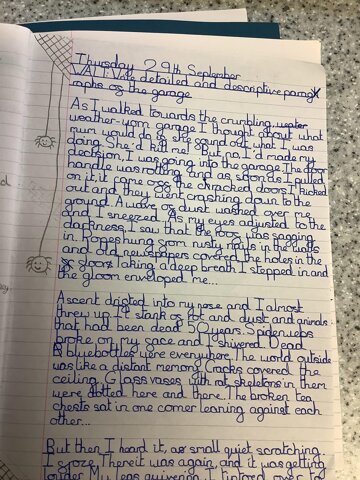 Thursday 29th September
WALT: Write detailed and descriptive parag
raphs of the garage
As I walked towards the crumbling, water
weather-worn garage I thought about what
mum would do if she found out what I was
doing. She'd kill me! But no, I'd made my
decision, I was going into the garage. The door
handle was rotting and as soon as I pulled
on it, it came off the chracked doors. I kicked
out and they went crashing down to the
ground. A wave of dust washed over me
and I sneezed. As my eyes adjusted to the
darkness, I saw that the roof was sagging
in. Ropes hung from rusty nails in the walls
and old newspapers covered the holes in the
floor. Taking a deep breath I stepped in and
the gloom enveloped me...
A scent drifted into my nose and I almost
threw up. It stank of rot and dust and animals
that had been dead 50 years. Spiderwebs
broke on my face and I shivered. Dead
bluebottles were everywhere. The world outside
was like a distant memory. Cracks covered the
ceiling. Glass vases with rat skeletons in them
were dotted here and there. The broken tea
chests sat in one corner leaning against each
other...
But then I heard it, a small quiet scratching.
I froze. There it was again, and it was getting
louder. My legs quivering, I tiptoed over to